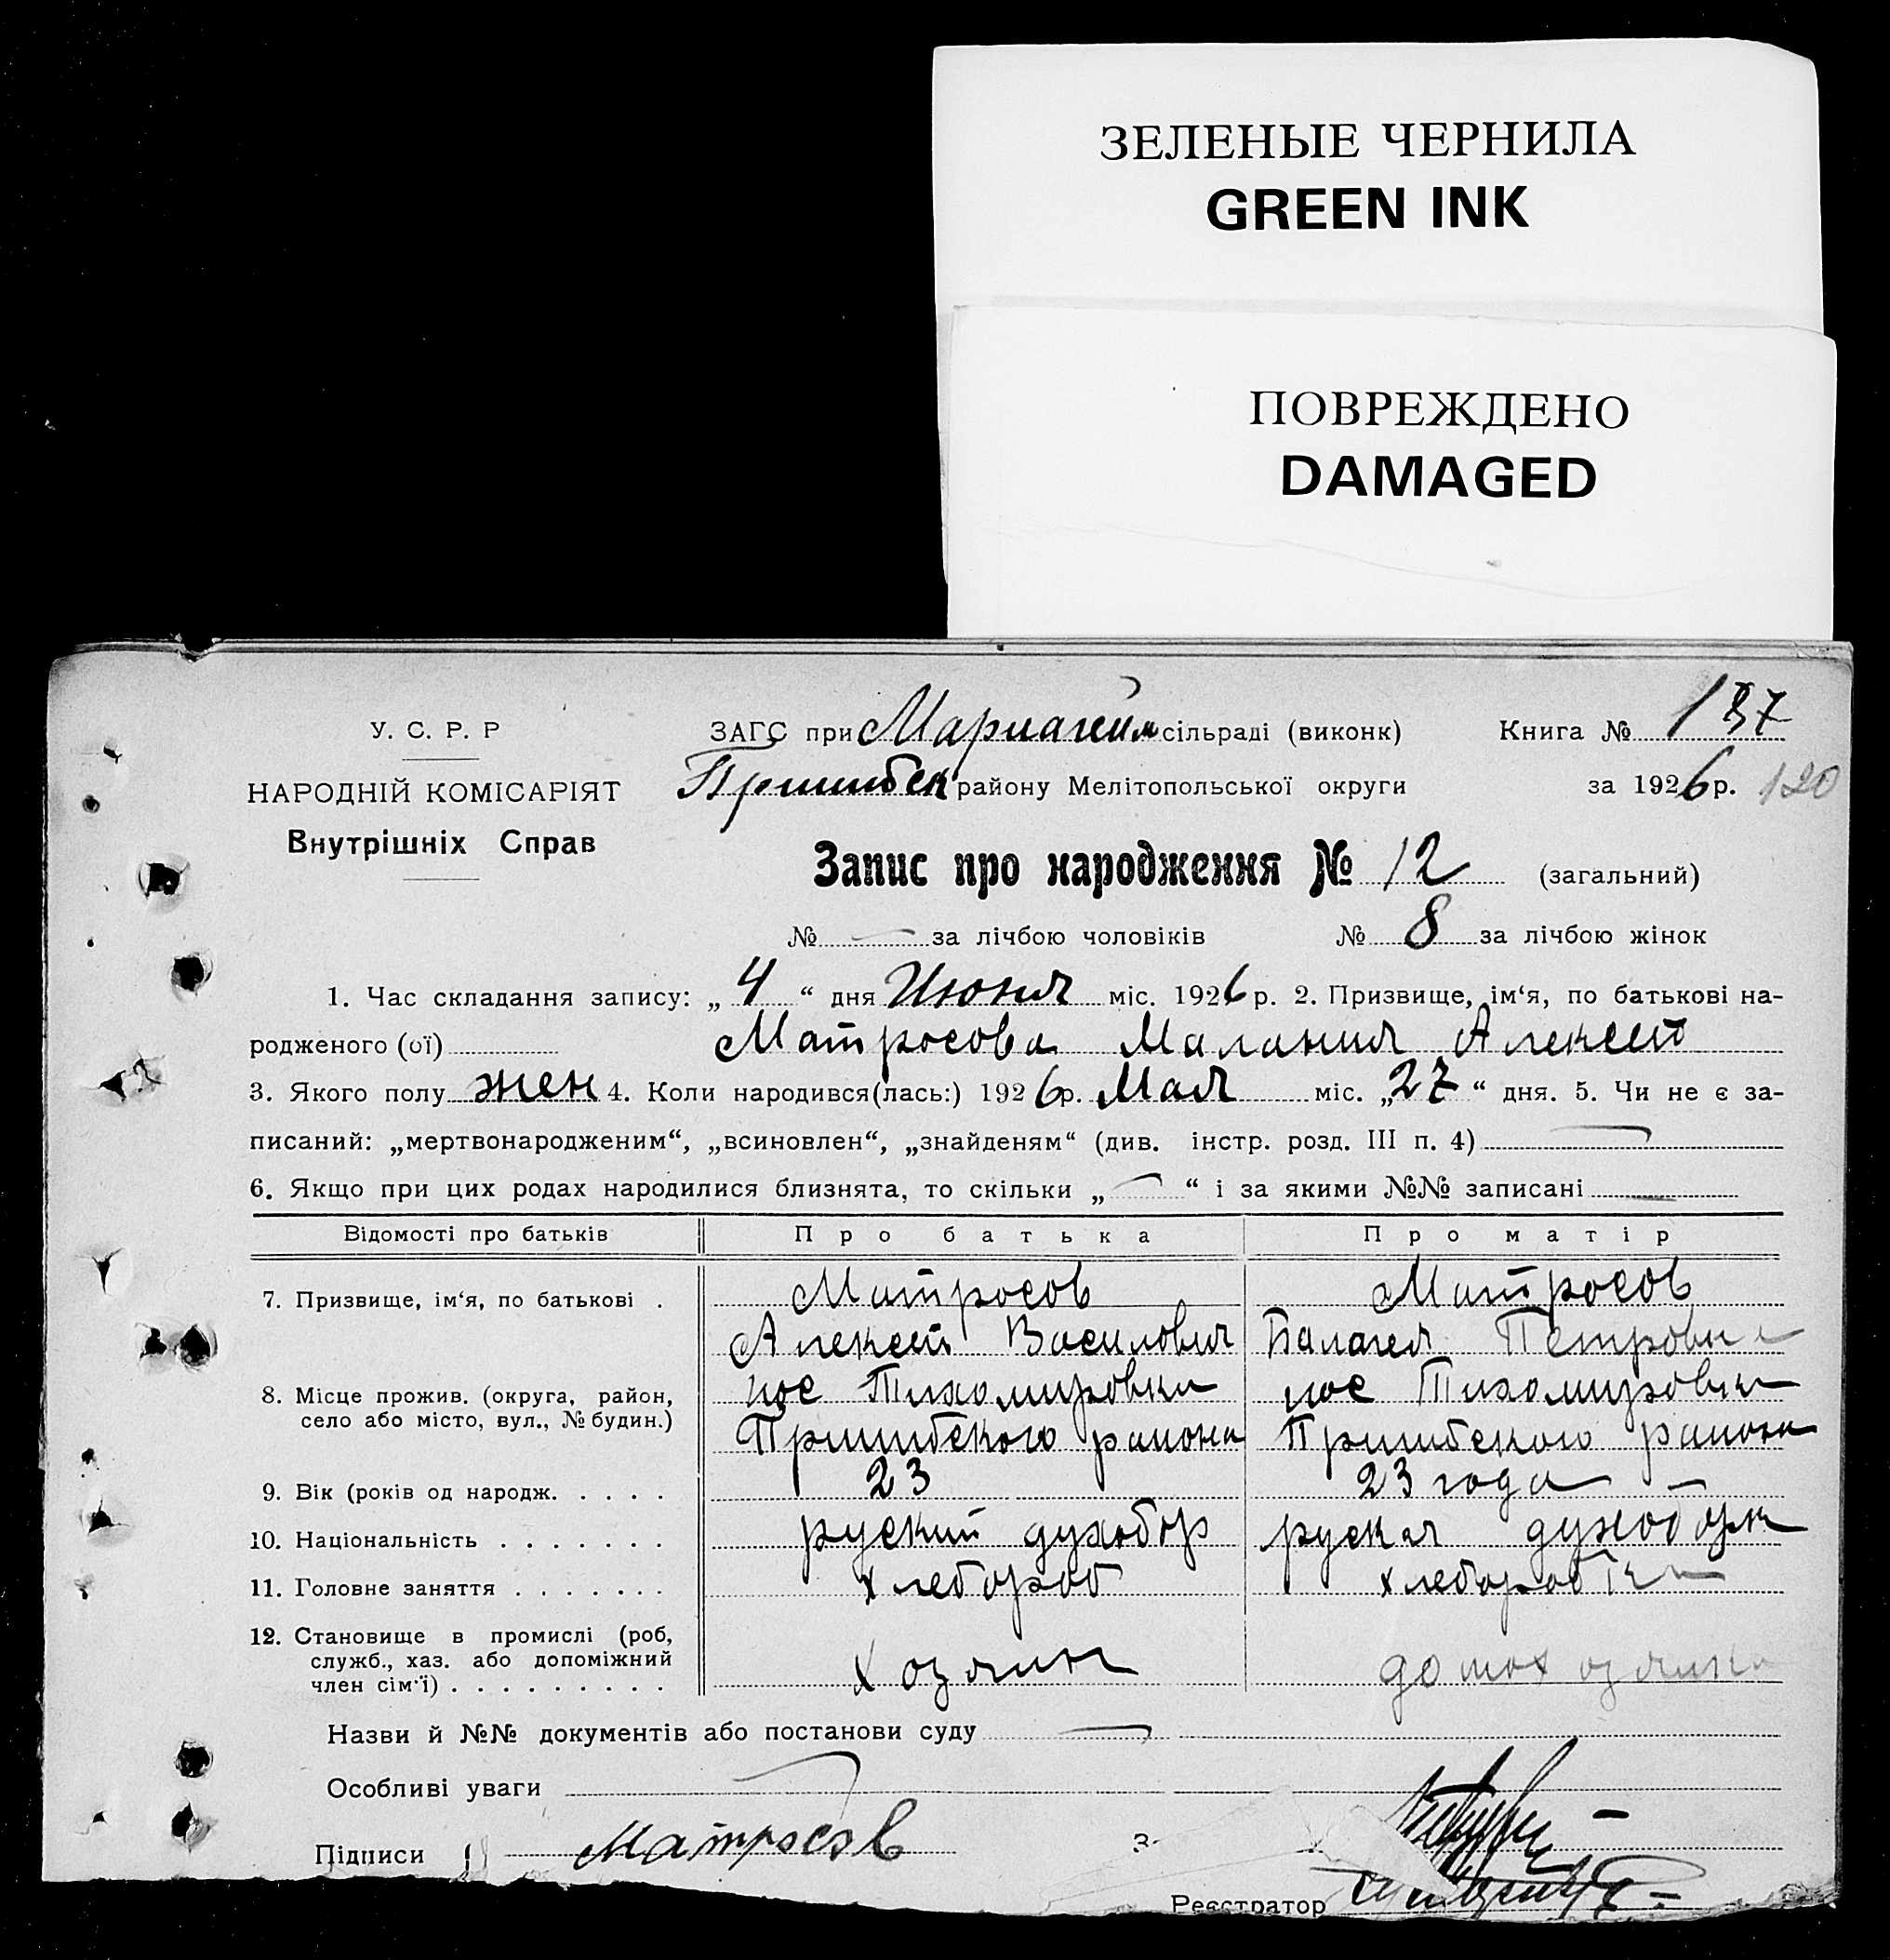 ЗЕЛЕНЫЕ ЧЕРНИЛА
GREEN INK
ПОВРЕЖДЕНО
DAMAGED
У. С. Р. Р
НАРОДНІЙ КОМІСАРІЯТ
Внутрішніх Справ
ЗАГС при Мариагейм сільраді (виконк) Книга № 137
Пришибск району Мелітопольської округи за 1926 р. 120
Запис про народження № 12 (загальний)
№ — за лічбою чоловіків № 8 за лічбою жінок
1. Час складання запису: „ 4 “ дня Июня міс. 1926 р. 2. Призвище, ім‘я, по батькові на-
родженого (ої) Матросова Малания Алексей
3. Якого полу жен 4. Коли народився(лась:) 1926 р. Мая міс. „27“ дня. 5. Чи не є за-
писаний: „мертвонародженим“, „всиновлен“, „знайденям“ (див. інстр. розд. III п. 4) —
6. Якщо при цих родах народилися близнята, то скільки „ — “ і за якими №№ записані —
Відомості про батьків Про батька Про матір
7. Призвище, ім‘я, по батькові . Матросов Матросов
Алексей Василович Палагея Петровн
8. Місце прожив. (округа, район, пос Тихомировки пос Тихомировки
село або місто, вул., № будин.) Пришибского раиона Пришибского раиона
9. Вік (років од народж. . . . . 23 23 года
10. Національність . . . . . . . руский духобор руская духоборк
11. Головне заняття . . . . . . . хлебороб хлеборобка
12. Становище в промислі (роб,
служб., хаз. або допоміжний хозяин домохозяика
член сім‘ї) . . . . . . . . .
Назви й №№ документів або постанови суду —
Особливі уваги
Підписи Матросов
Реєстратор